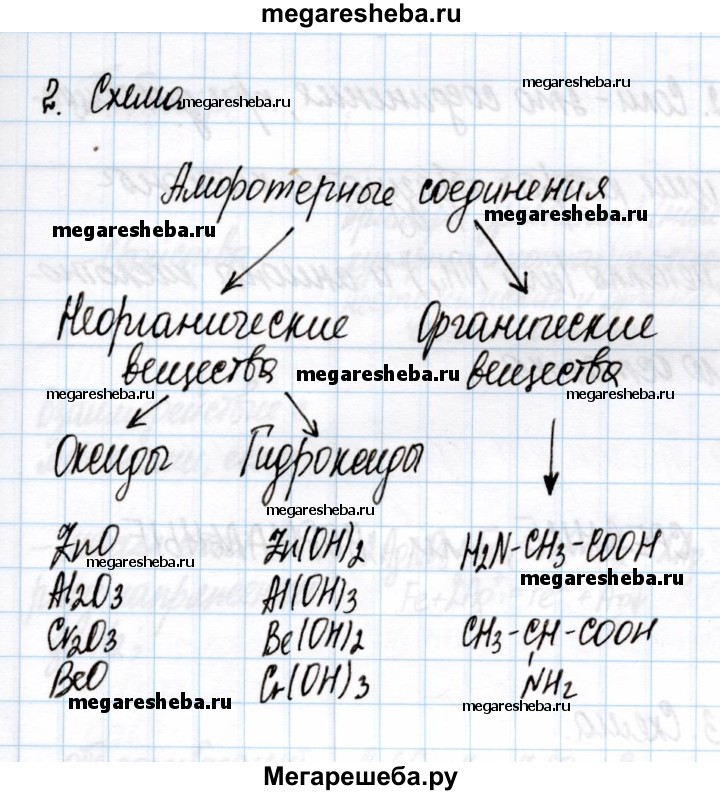 megaresheba.ru
megaresheba.ru
2. Схема megaresheba.ru
Амфотерные соединения
megaresheba.ru
megaresheba.ru
Неорганические Органические
вещества megaresheba.ru вещества
megaresheba.ru megaresheba.ru
Оксиды Гидроксиды
megaresheba.ru
ZnO Zn(OH)2 H2N-CH3-COOH
megaresheba.ru megaresheba.ru
Al2O3 Al(OH)3
Cr2O3 Be(OH)2 CH3-CH-COOH
BeO Cr(OH)3 NH2
megaresheba.ru megaresheba.ru
Мегарешеба.ру